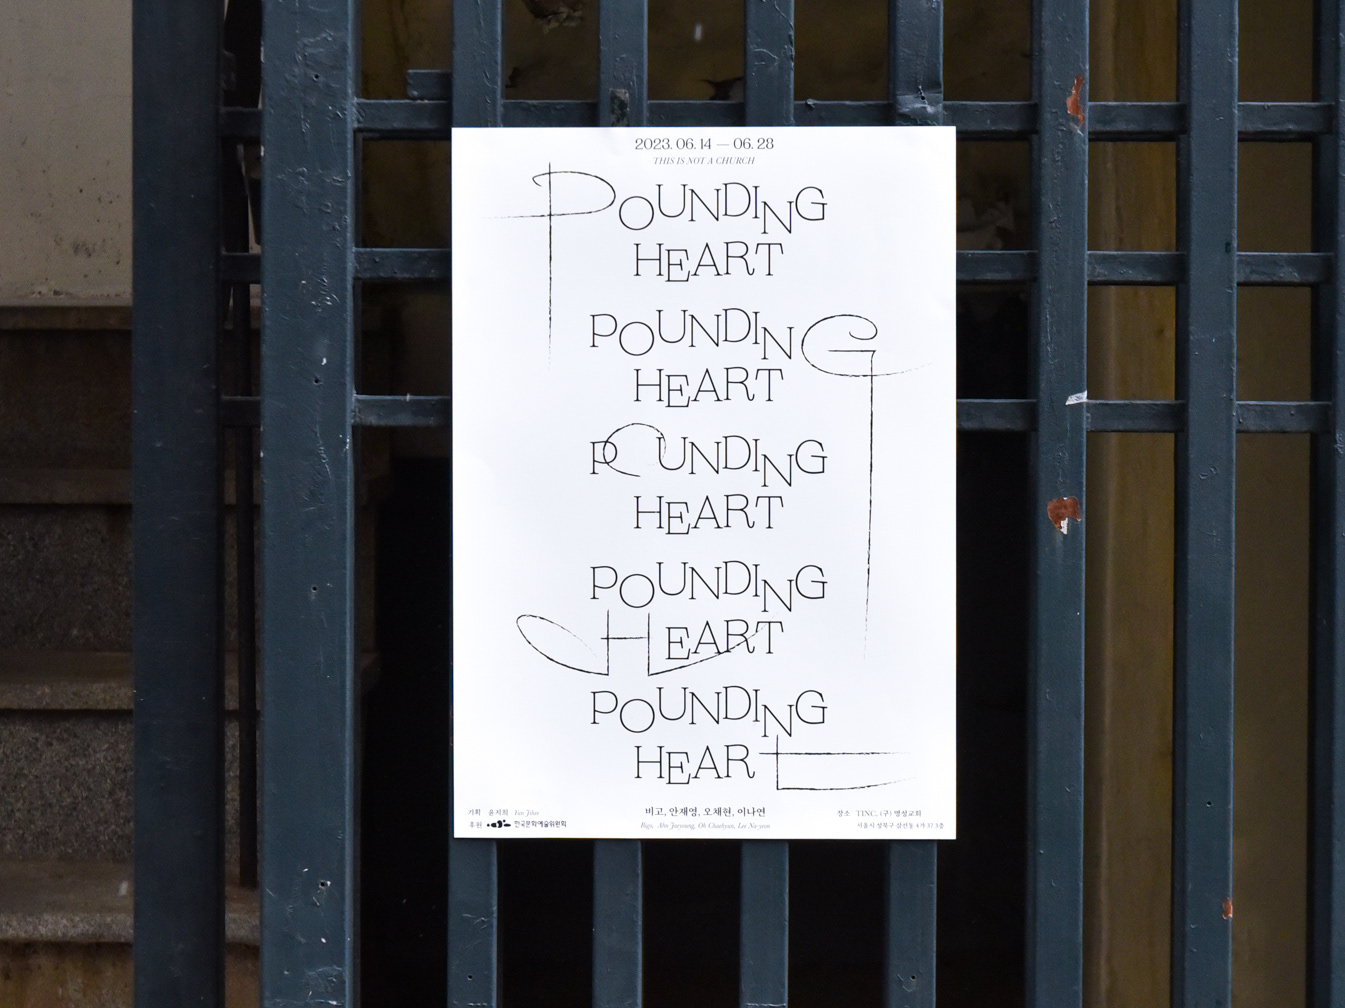 2023. 06. 14 — 06. 28
THIS IS NOT A CHURCH
POUNDING
HEART
POUNDING
HEART
POUNDING
HEART
POUNDING
HEART
POUNDING
HEART
기획 윤지희
후원 한국문화예술위원회
비고, 안재영, 오채현, 이나연
Bigo, Ahn Jaeyoung, Oh Chaehyun, Lee Na-yeon
장소 TINC, (구) 명성교회
서울시 성북구 삼선동 4가 37 3층